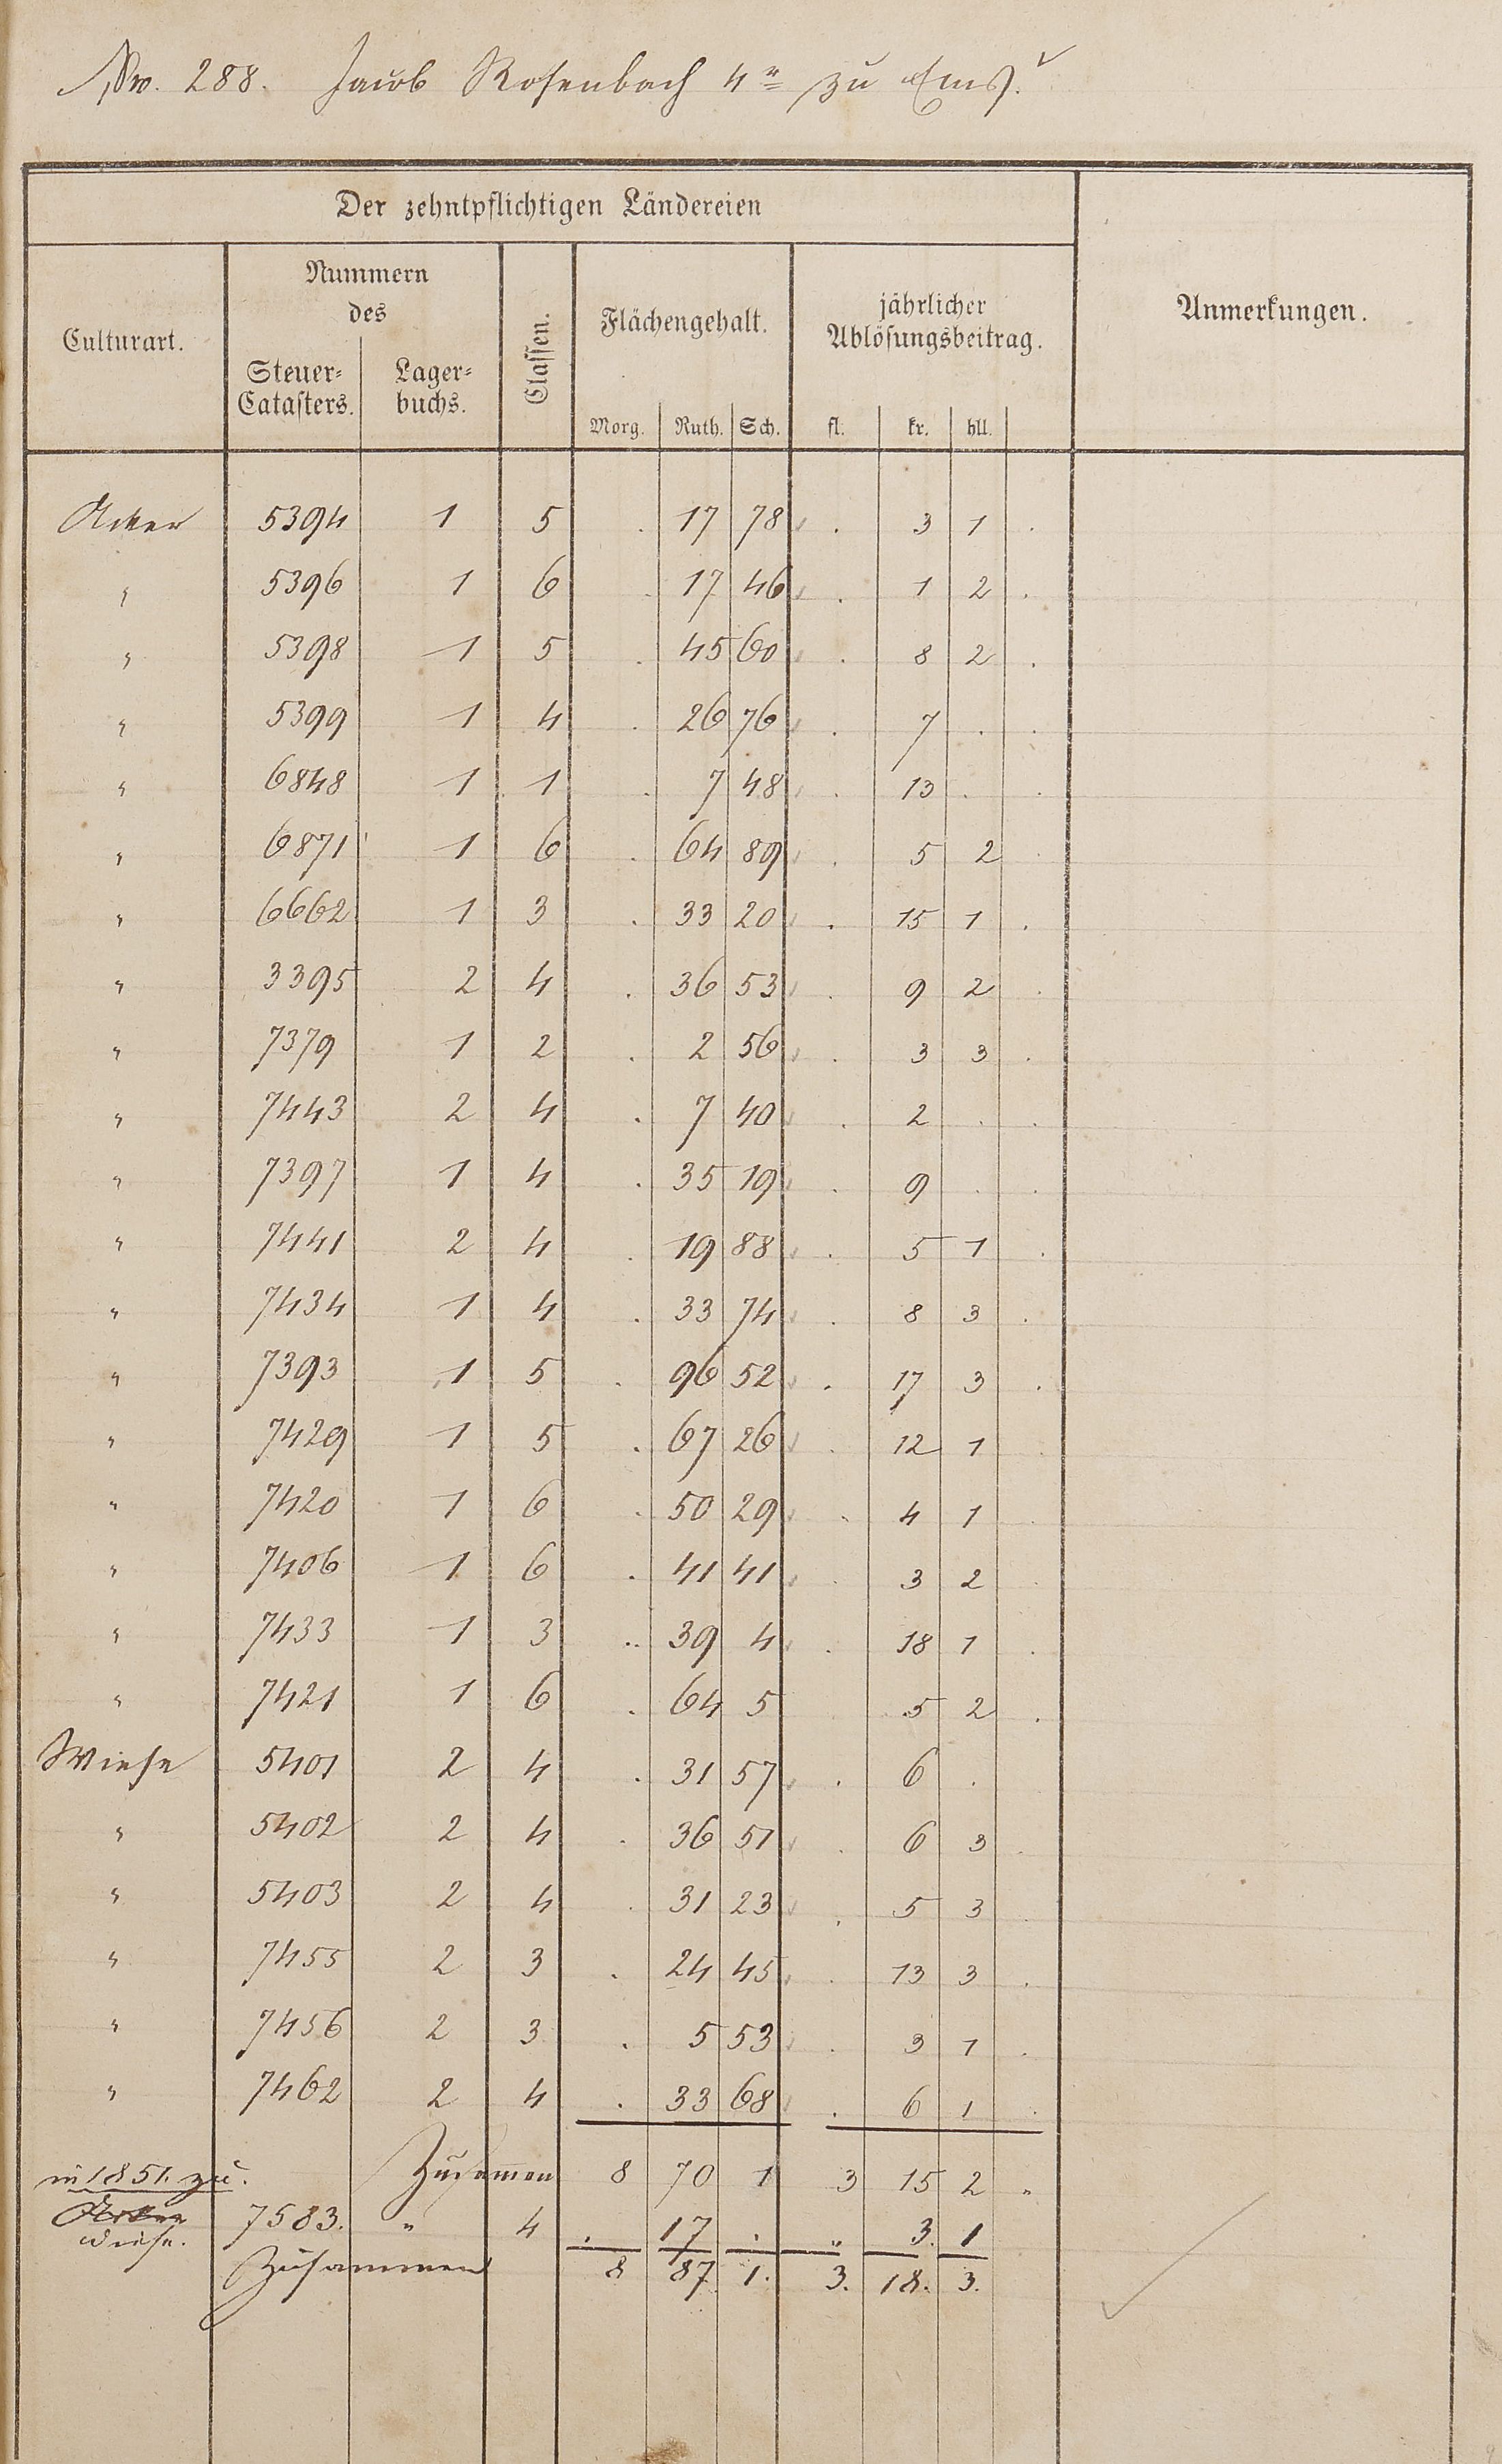 No. 288. Jacob Rosenbach 4r zu Ems.
Der zehntpflichtigen Ländereien
Culturart. Nummern des Classen. Flächengehalt. jährlicher Ablösungsbeitrag. Anmerkungen.
Steuer=Catasters. Lager=buchs.
Morg. Ruth. Sch. fl. kr. hll.
Acker 5394 1 5 . 17 78 . 3 1 .
" 5396 1 6 . 17 46 . 1 2 .
" 5398 1 5 . 45 60 . 8 2 .
" 5399 1 4 . 26 76 . 7 . .
" 6848 1 1 . 7 48 . 13 . .
" 6871 1 6 . 64 89 . 5 2 .
" 6662 1 3 . 33 20 . 15 1 .
" 3395 2 4 . 36 53 . 9 2 .
" 7379 1 2 . 2 56 . 3 3 .
" 7443 2 4 . 7 40 . 2 . .
" 7397 1 4 . 35 19 . 9 . .
" 7441 2 4 . 19 88 . 5 1 .
" 7434 1 4 . 33 74 . 8 3 .
" 7393 1 5 . 96 52 . 17 3 .
" 7429 1 5 . 67 26 . 12 1 .
" 7420 1 6 . 50 29 . 4 1 .
" 7406 1 6 . 41 41 . 3 2 .
" 7433 1 3 . 39 4 . 18 1 .
" 7421 1 6 . 64 5 5 2 .
Wiese 5401 2 4 . 31 57 . 6 .
" 5402 2 4 . 36 51 . 6 3 .
" 5403 2 4 . 31 23 . 5 3 .
" 7455 2 3 . 24 45 . 13 3 .
" 7456 2 3 . 5 53 . 3 1 .
" 7462 2 4 . 33 68 . 6 1 .
Zusammen 8 70 1 3 15 2 "
in 1851. zu.
Acker
Wiese. 7583. " 4 . 17 . " 3. 1
Zusammen 8 87 1. 3. 18. 3.